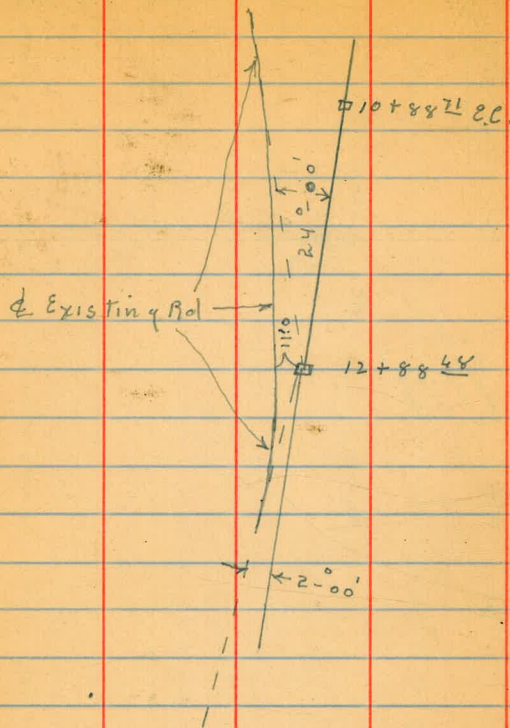 10+88 71 E.C.
24°-00'
℄ Existing Rd
11.0
12+88 48
2°-00'